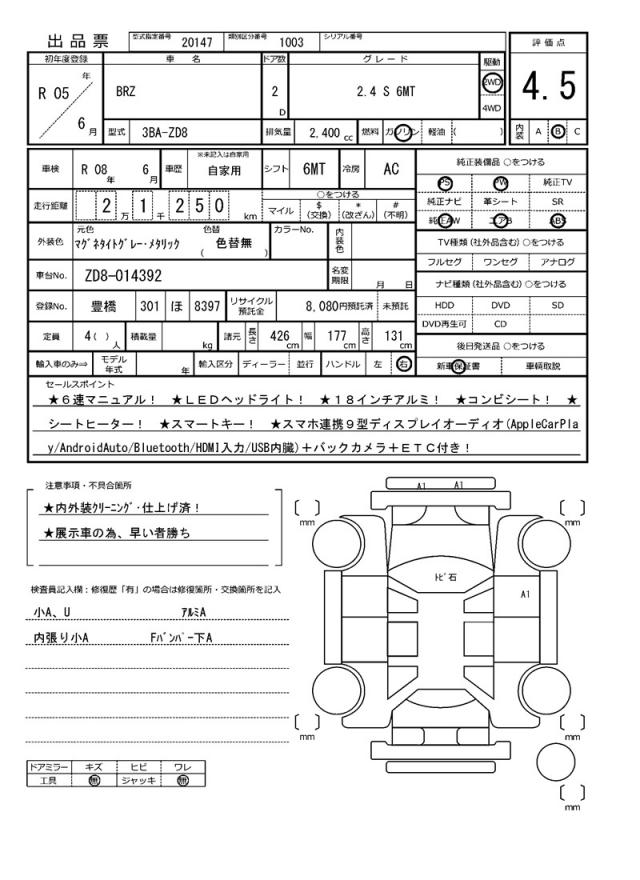 出品票 型式指定番号 20147 類別区分番号 1003 シリアル番号
評価点
4.5
内装 A B C
初年度登録 車名 ドア数 グレード 駆動
R 05 年 6 月 BRZ 2 D 2.4 S 6MT 2WD 4WD
型式 3BA-ZD8 排気量 2,400 cc 燃料 ガソリン 軽油 ( )
車検 R 08 年 6 月 車歴 ※未記入は自家用 自家用 シフト 6MT 冷房 AC
走行距離 2 万 1 千 2 5 0 km ○をつける
マイル $ (交換) * (改ざん) # (不明)
外装色 元色 マグネタイトグレー・メタリック 色替 ( 色替無 ) カラーNo. 内装色
車台No. ZD8-014392 名変期限 月 日
登録No. 豊橋 301 ほ 8397 リサイクル預託金 8,080円預託済 未預託
定員 4( ) 人 積載量 kg 諸元 長さ 426 cm 幅 177 cm 高さ 131 cm
輸入車のみ⇒ モデル年式 年 輸入区分 ディーラー 並行 ハンドル 左 右
純正装備品 ○をつける
PS PW 純正TV
純正ナビ 革シート SR
純正AW エアB ABS
TV種類 (社外品含む) ○をつける
フルセグ ワンセグ アナログ
ナビ種類 (社外品含む) ○をつける
HDD DVD SD
DVD再生可 CD
後日発送品 ○をつける
新車保証書 車輌取説
セールスポイント
★６速マニュアル！ ★ＬＥＤヘッドライト！ ★１８インチアルミ！ ★コンビシート！ ★
シートヒーター！ ★スマートキー！ ★スマホ連携９型ディスプレイオーディオ(AppleCarPla
y/AndroidAuto/Bluetooth/HDMI入力/USB内臓)＋バックカメラ＋ＥＴＣ付き！
注意事項・不具合箇所
★内外装クリーニング・仕上げ済！
★展示車の為、早い者勝ち
検査員記入欄：修復歴「有」の場合は修復箇所・交換箇所を記入
小A、U アルミA
内張り小A Fバンパー下A
ドアミラー キズ ヒビ ワレ
工具 無 ジャッキ 無
A1 A1
トビ石
A1
mm
mm
mm
mm
mm